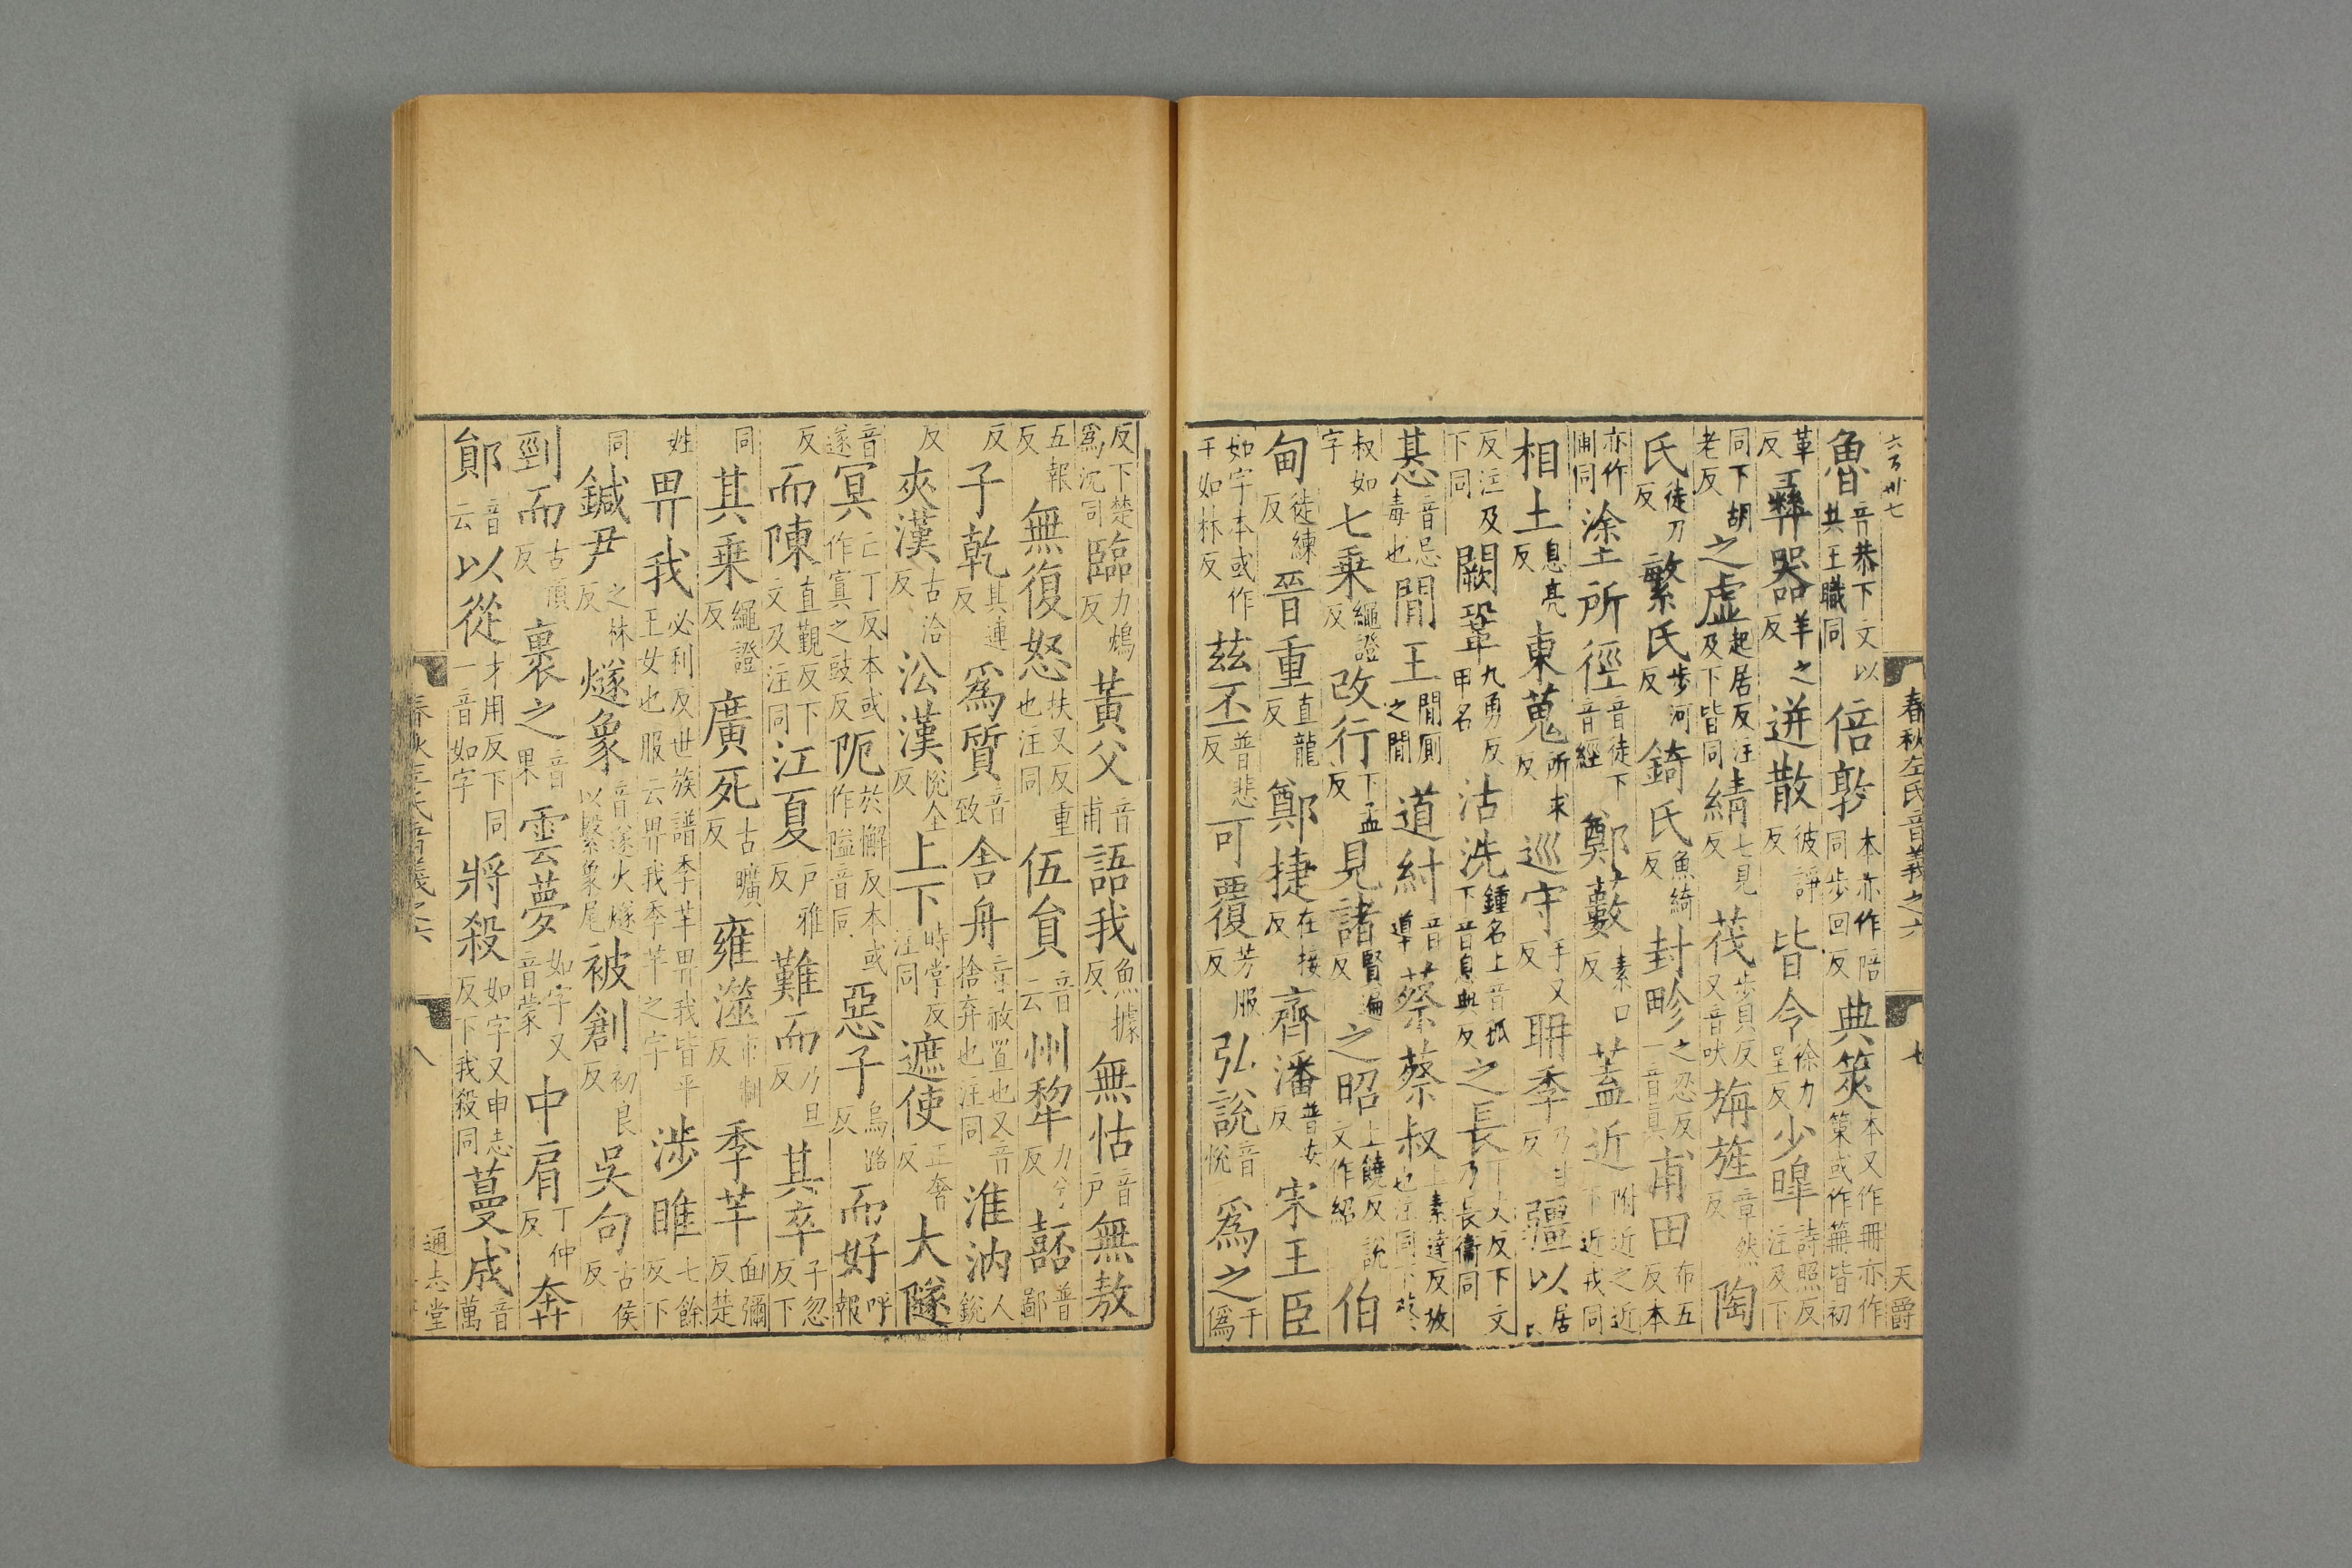 春秋左氏音義之六 七 天爵
魯音恭下文以共王職同倍敦本亦作陪同步回反典筴本又作冊亦作策或作䇲皆初
革反彝器羊之反迸散彼諍反皆令徐力呈反少皥詩照反注及下
同下胡老反之虛起居反注及下皆同綪七見反茷步貝反又音吠旃旌章然反陶
氏徒刀反繁氏步河反錡氏魚綺反封畛之忍反一音真甫田布五反本
亦作圃同塗所徑音徒下音經鄭藪素口反蓋近附近之近下近戎同
相土息亮反東蒐所求反巡守手又反聃季乃甘反疆以居
反注及下同闕鞏九勇反甲名沽洗鍾名上音孤下音息典反之長丁丈反下文乃長衞同
惎音忌毒也閒王閒厠之閒道紂音導蔡蔡叔上素達反放也注同
叔如字七乗繩證反改行下孟反見諸賢遍反之昭上饒反說文作紹伯
甸徒練反晉重直龍反鄭捷在接反齊潘普安反宋王臣
如字本或作壬如林反茲丕普悲反可覆芳服反弘說音悅爲之于僞
反下楚爲沈同臨力鴆反黃父音甫語我魚據反無怙音戶無敖
五報反無復怒扶又反重也注同伍員音云州犂力兮反嚭普鄙
反子乾其連反爲質音致舍舟音捨置也又音捨弃也注同淮汭人銳
反夾漢古洽反㳂漢悅全反上下時掌反注同遮使正奢反大隧
音遂冥亡丁反本或作寘之豉反阨於懈反本或作隘音同惡子烏路反而好呼報
反而陳直覲反下文及注同江夏戶雅反難而乃旦反其卒子忽反下
同其乗繩證反廣死古曠反雍澨市制反季羋面彌反楚
姓畀我必利反世族譜季羋畀我皆平王女也服云畀我季羋之字涉睢七餘反下
同鍼尹之林反燧象音遂火燧以繫象尾被創初良反吳句古侯反
剄而古頂反裹之音果雲夢如字又音蒙中肩丁仲反奔
鄖音云以從才用反下同一音如字將殺如字又申志反下我殺同蔓成音萬
春秋左氏音義之六 八 通志堂